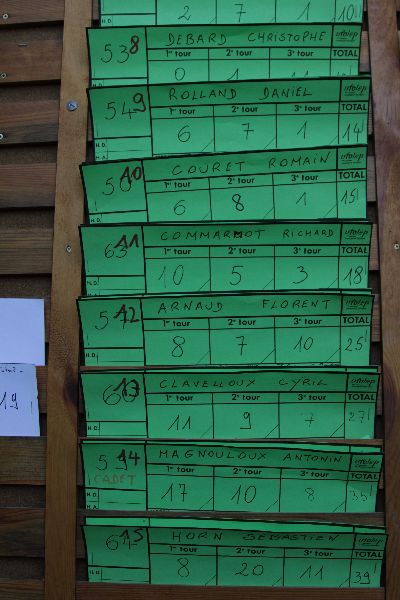 2 7 1 10
538 DEBARD CHRISTOPHE ufolep
1er tour 2e tour 3e tour TOTAL
0 1
H.D.
549 ROLLAND DANIEL ufolep
1er tour 2e tour 3e tour TOTAL
6 7 1 14
H.D.
10 COURET ROMAIN ufolep
1er tour 2e tour 3e tour TOTAL
6 8 1 15
H.D.
11 COMMARMOT RICHARD ufolep
1er tour 2e tour 3e tour TOTAL
10 5 3 18
H.D.
12 ARNAUD FLORENT ufolep
1er tour 2e tour 3e tour TOTAL
8 7 10 25
H.D.
13 CLAVELLOUX CYRIL ufolep
1er tour 2e tour 3e tour TOTAL
11 9 7 27
H.D.
14 MAGNOULOUX ANTONIN ufolep
CADET
1er tour 2e tour 3e tour TOTAL
17 10 8 35
H.D.
H.A.
15 HORN SEBASTIEN ufolep
1er tour 2e tour 3e tour TOTAL
8 20 11 39
H.D.
19